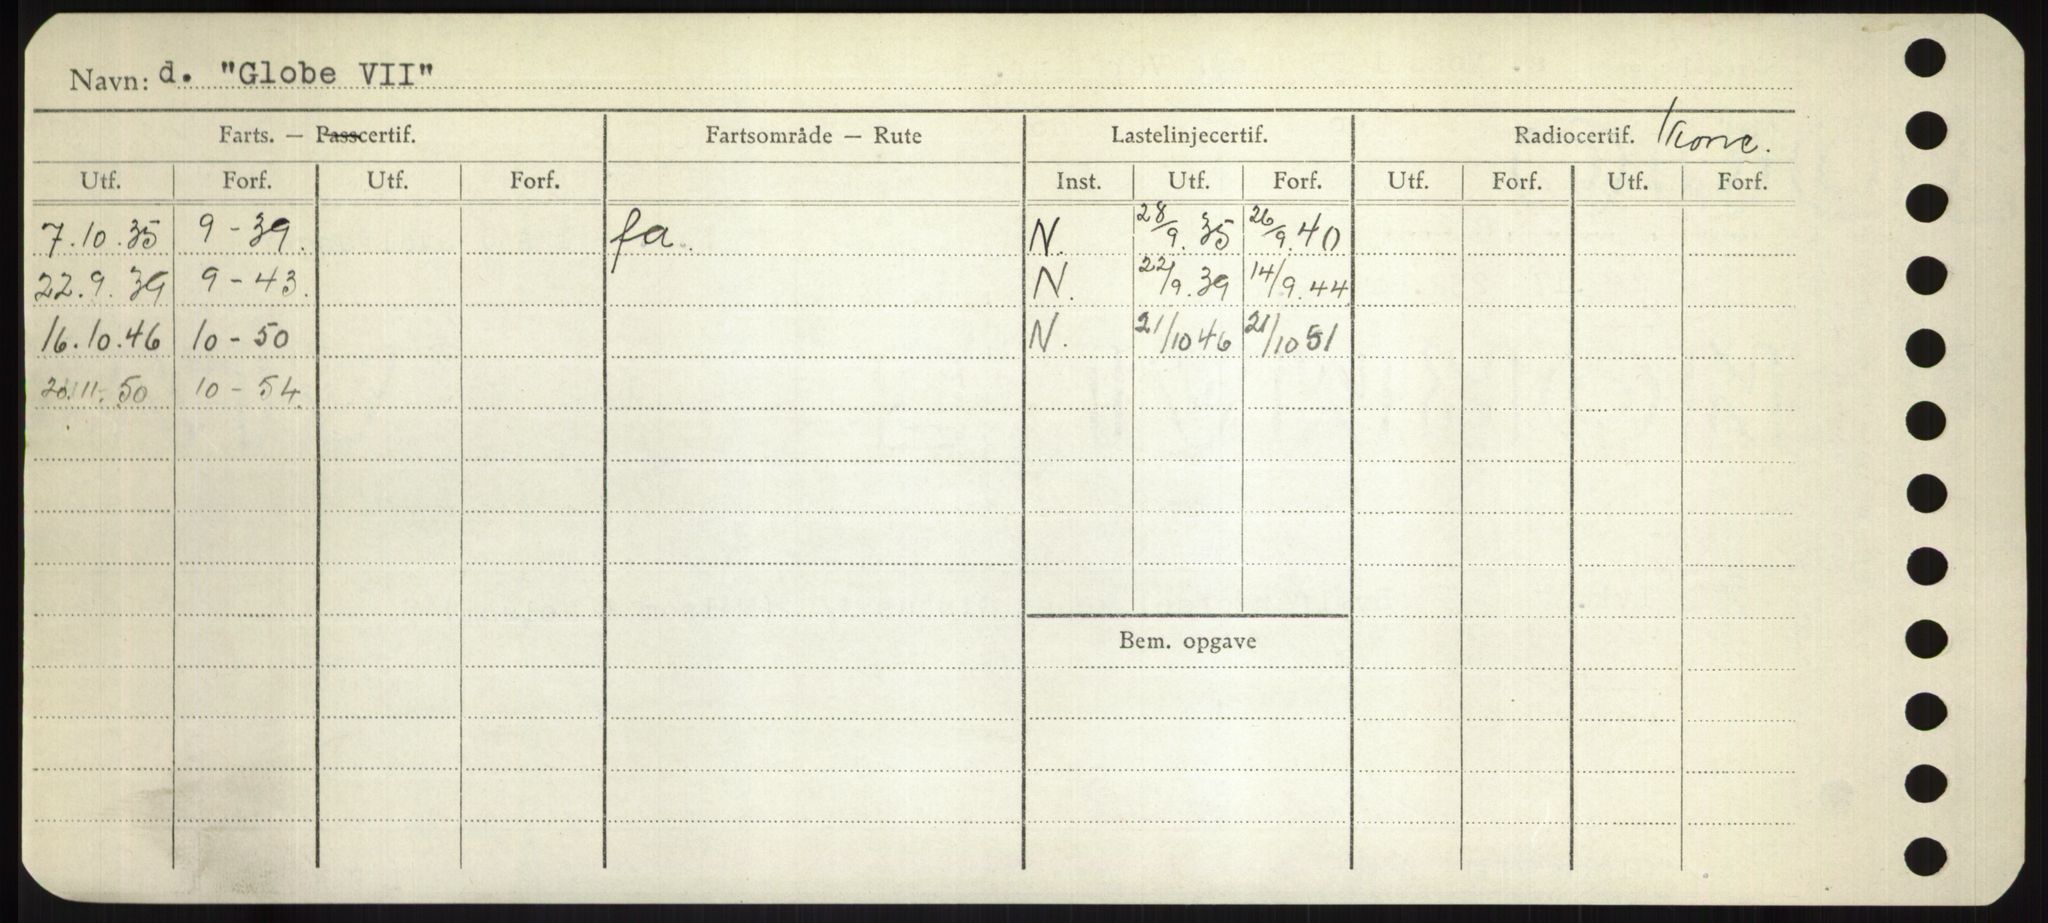 Navn: d. "Globe VII"
Farts. — Passcertif. Fartsområde — Rute Lastelinjecertif. Radiocertif. /konv.
Utf. Forf. Utf. Forf. Inst. Utf. Forf. Utf. Forf. Utf. Forf.
7.10.35 9-39. fa. N. 28/9.35 26/9.40
22.9.39 9-43. N. 22/9.39 14/9.44
16.10.46 10-50 N. 21/10 46 21/10 51
11.50 10-54
Bem. opgave